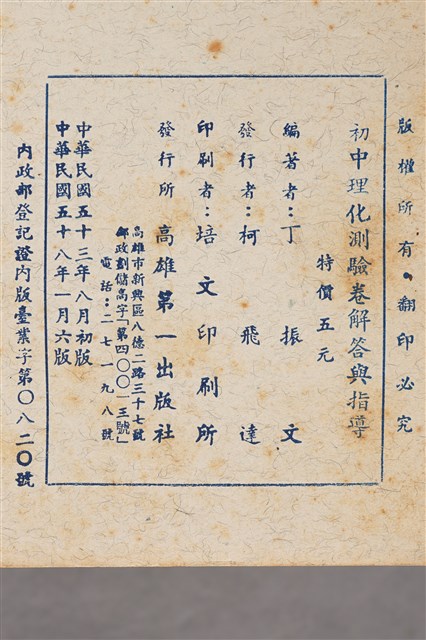 版權所有・翻印必究
初中理化測驗卷解答與指導
特價五元
編著者：丁振文
發行者：柯飛達
印刷者：培文印刷所
發行所 高雄第一出版社
高雄市新興區八德二路三十七號
郵政劃儲高字「第四〇〇一三號」
電話：二七一九八號
中華民國五十三年八月初版
中華民國五十八年一月六版
內政部登記證內版臺業字第〇八二〇號